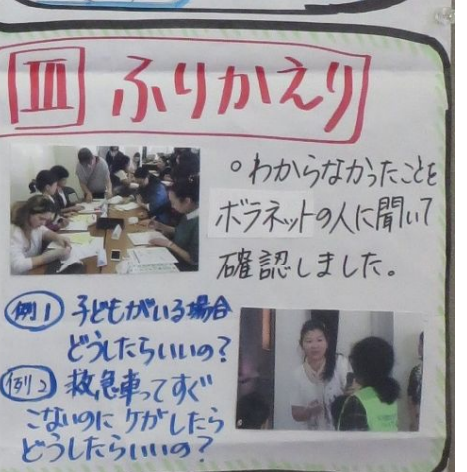 Ⅲ ふりかえり
○わからなかったことを
ボラネットの人に聞いて
確認しました。
例1 子どもがいる場合
どうしたらいいの?
例2 救急車ってすぐ
こないのに ケガしたら
どうしたらいいの?